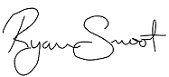 Ryan Smoot